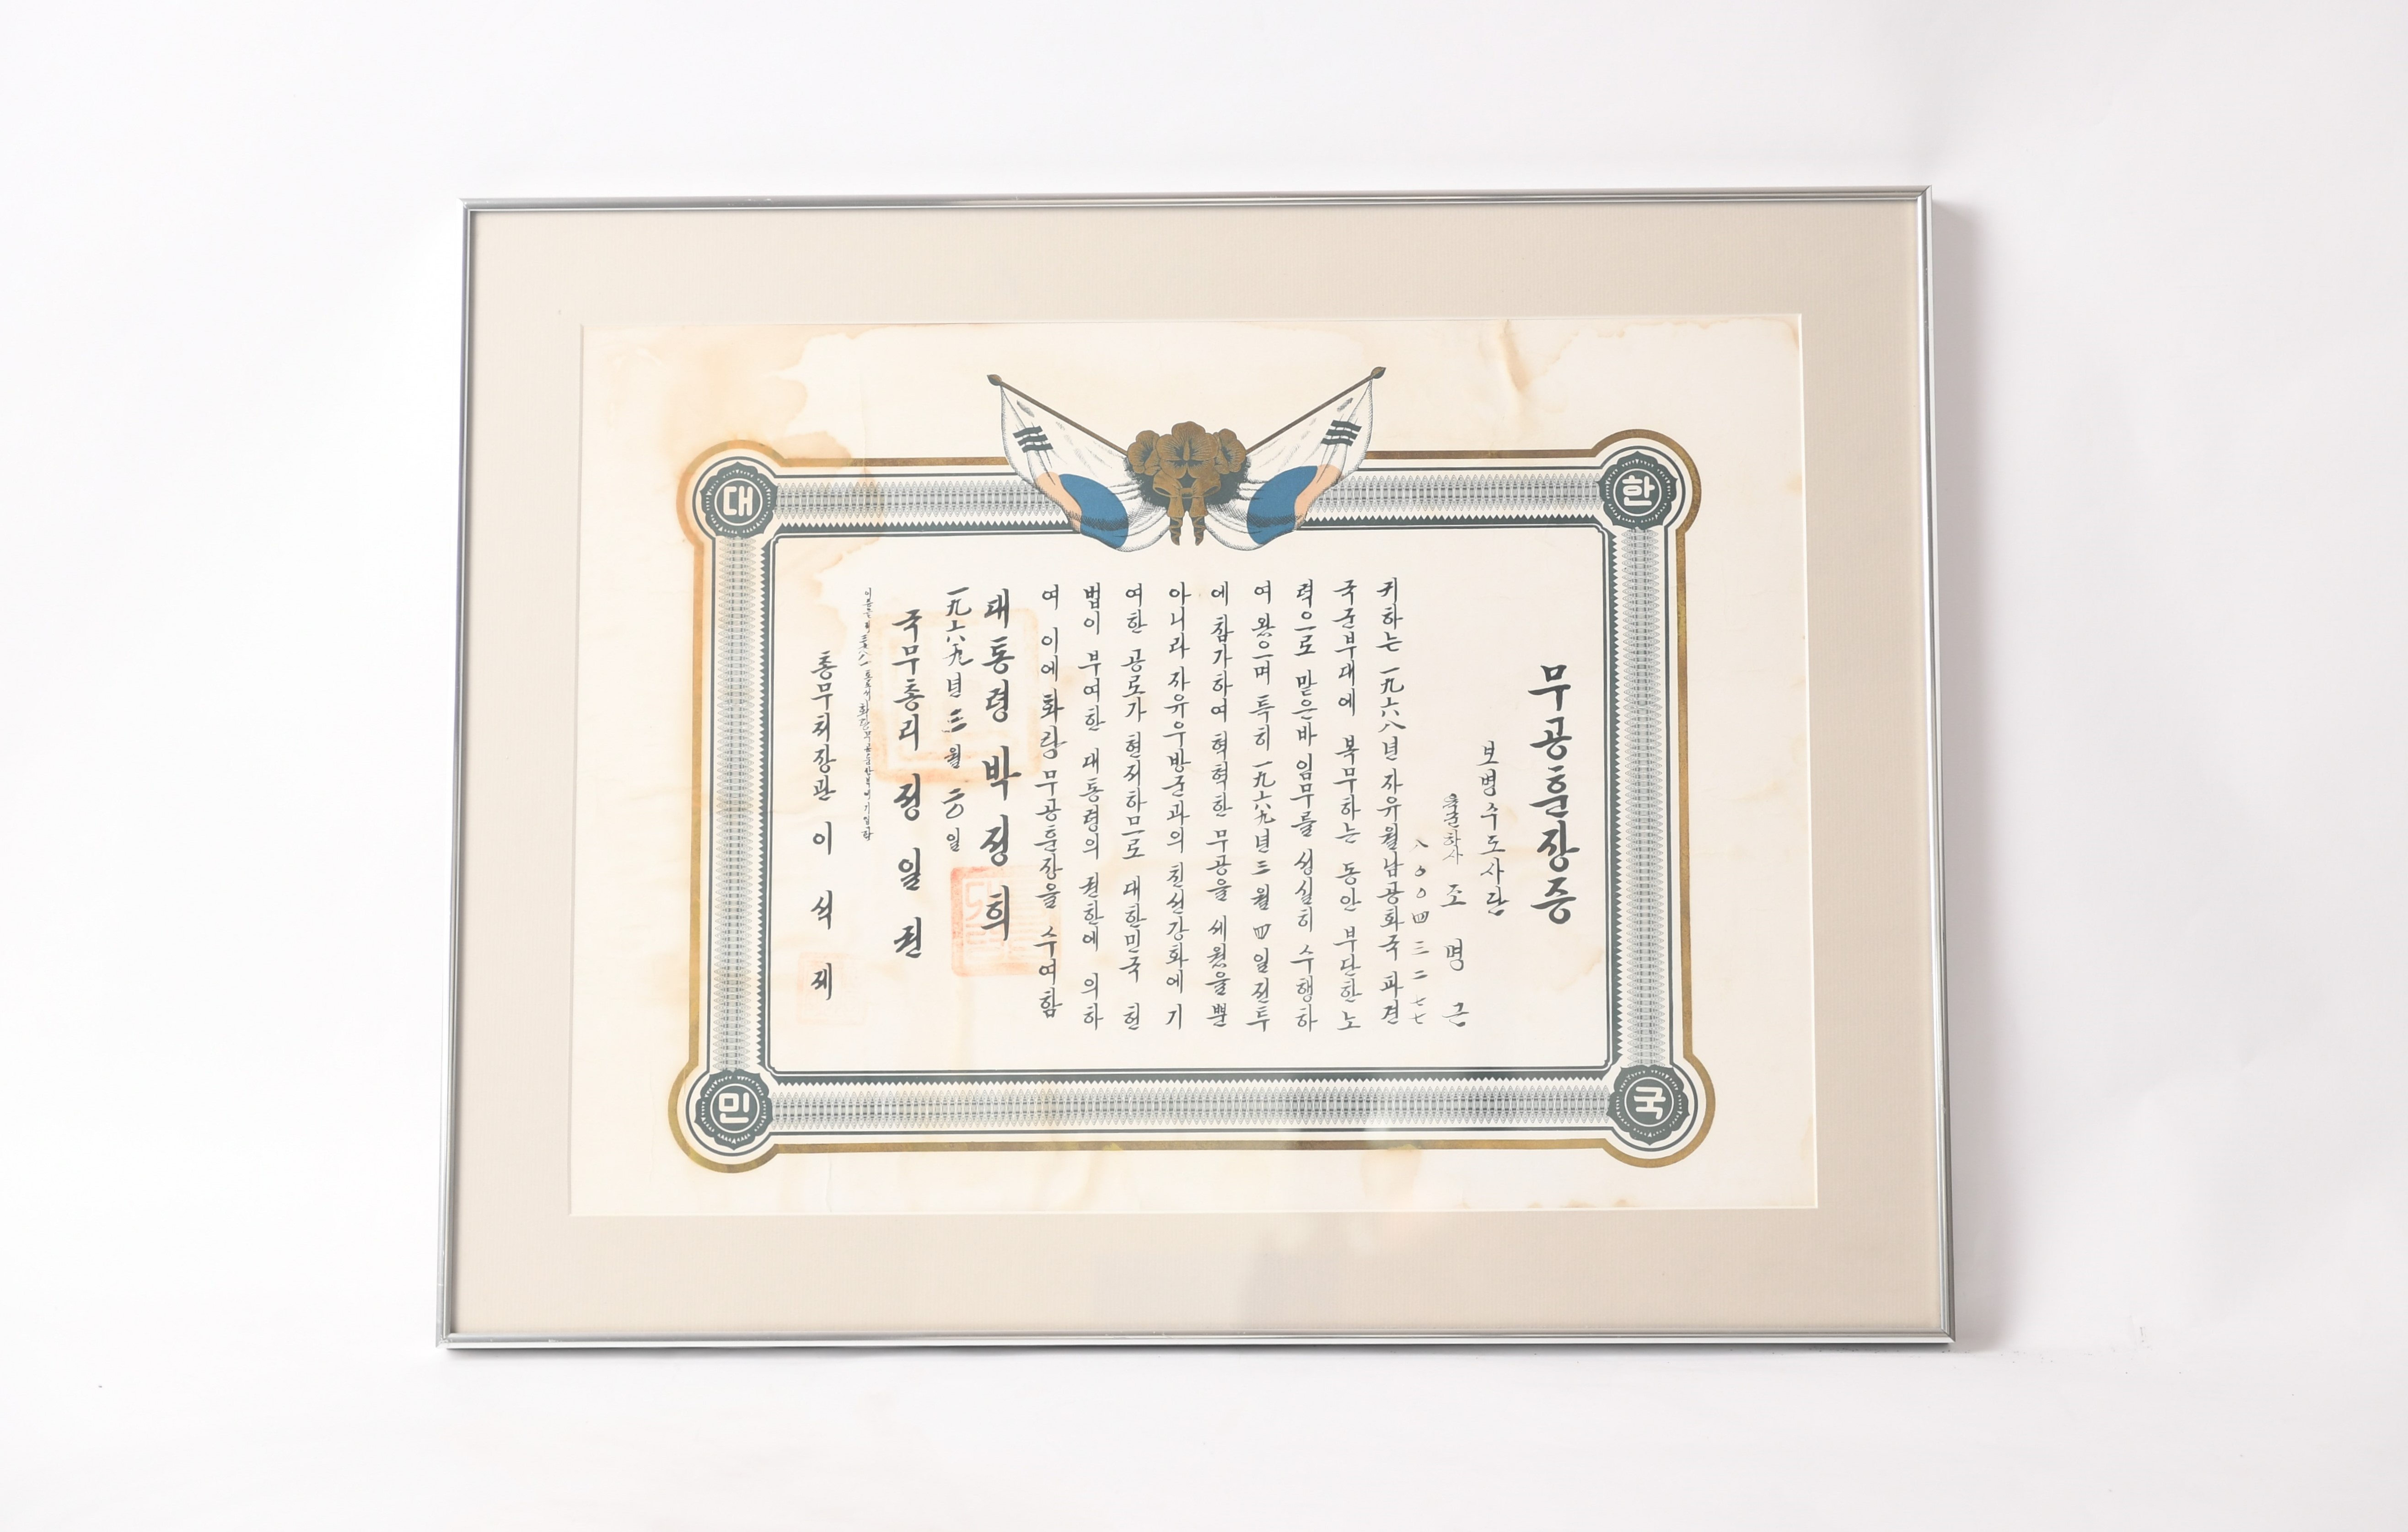 대
한
민
국
무공훈장증
보병수도사단
육군하사 조명근
八00四三二七七
귀하는 一九六八년 자유월남공화국 파견
국군부대에 복무하는 동안 부단한 노
력으로 맡은바 임무를 성실히 수행하
여 왔으며 특히 一九六九년 三월 四일전투
에 참가하여 혁혁한 무공을 세웠을뿐
아니라 자유우방군과의 친선강화에 기
여한 공로가 현저하므로 대한민국 헌
법이 부여한 대통령의 권한에 의하
여 이에 화랑 무공훈장을 수여함
대통령 박정희
一九六九년 三월 二0일
국무총리 정일권
총무처장관 이석제